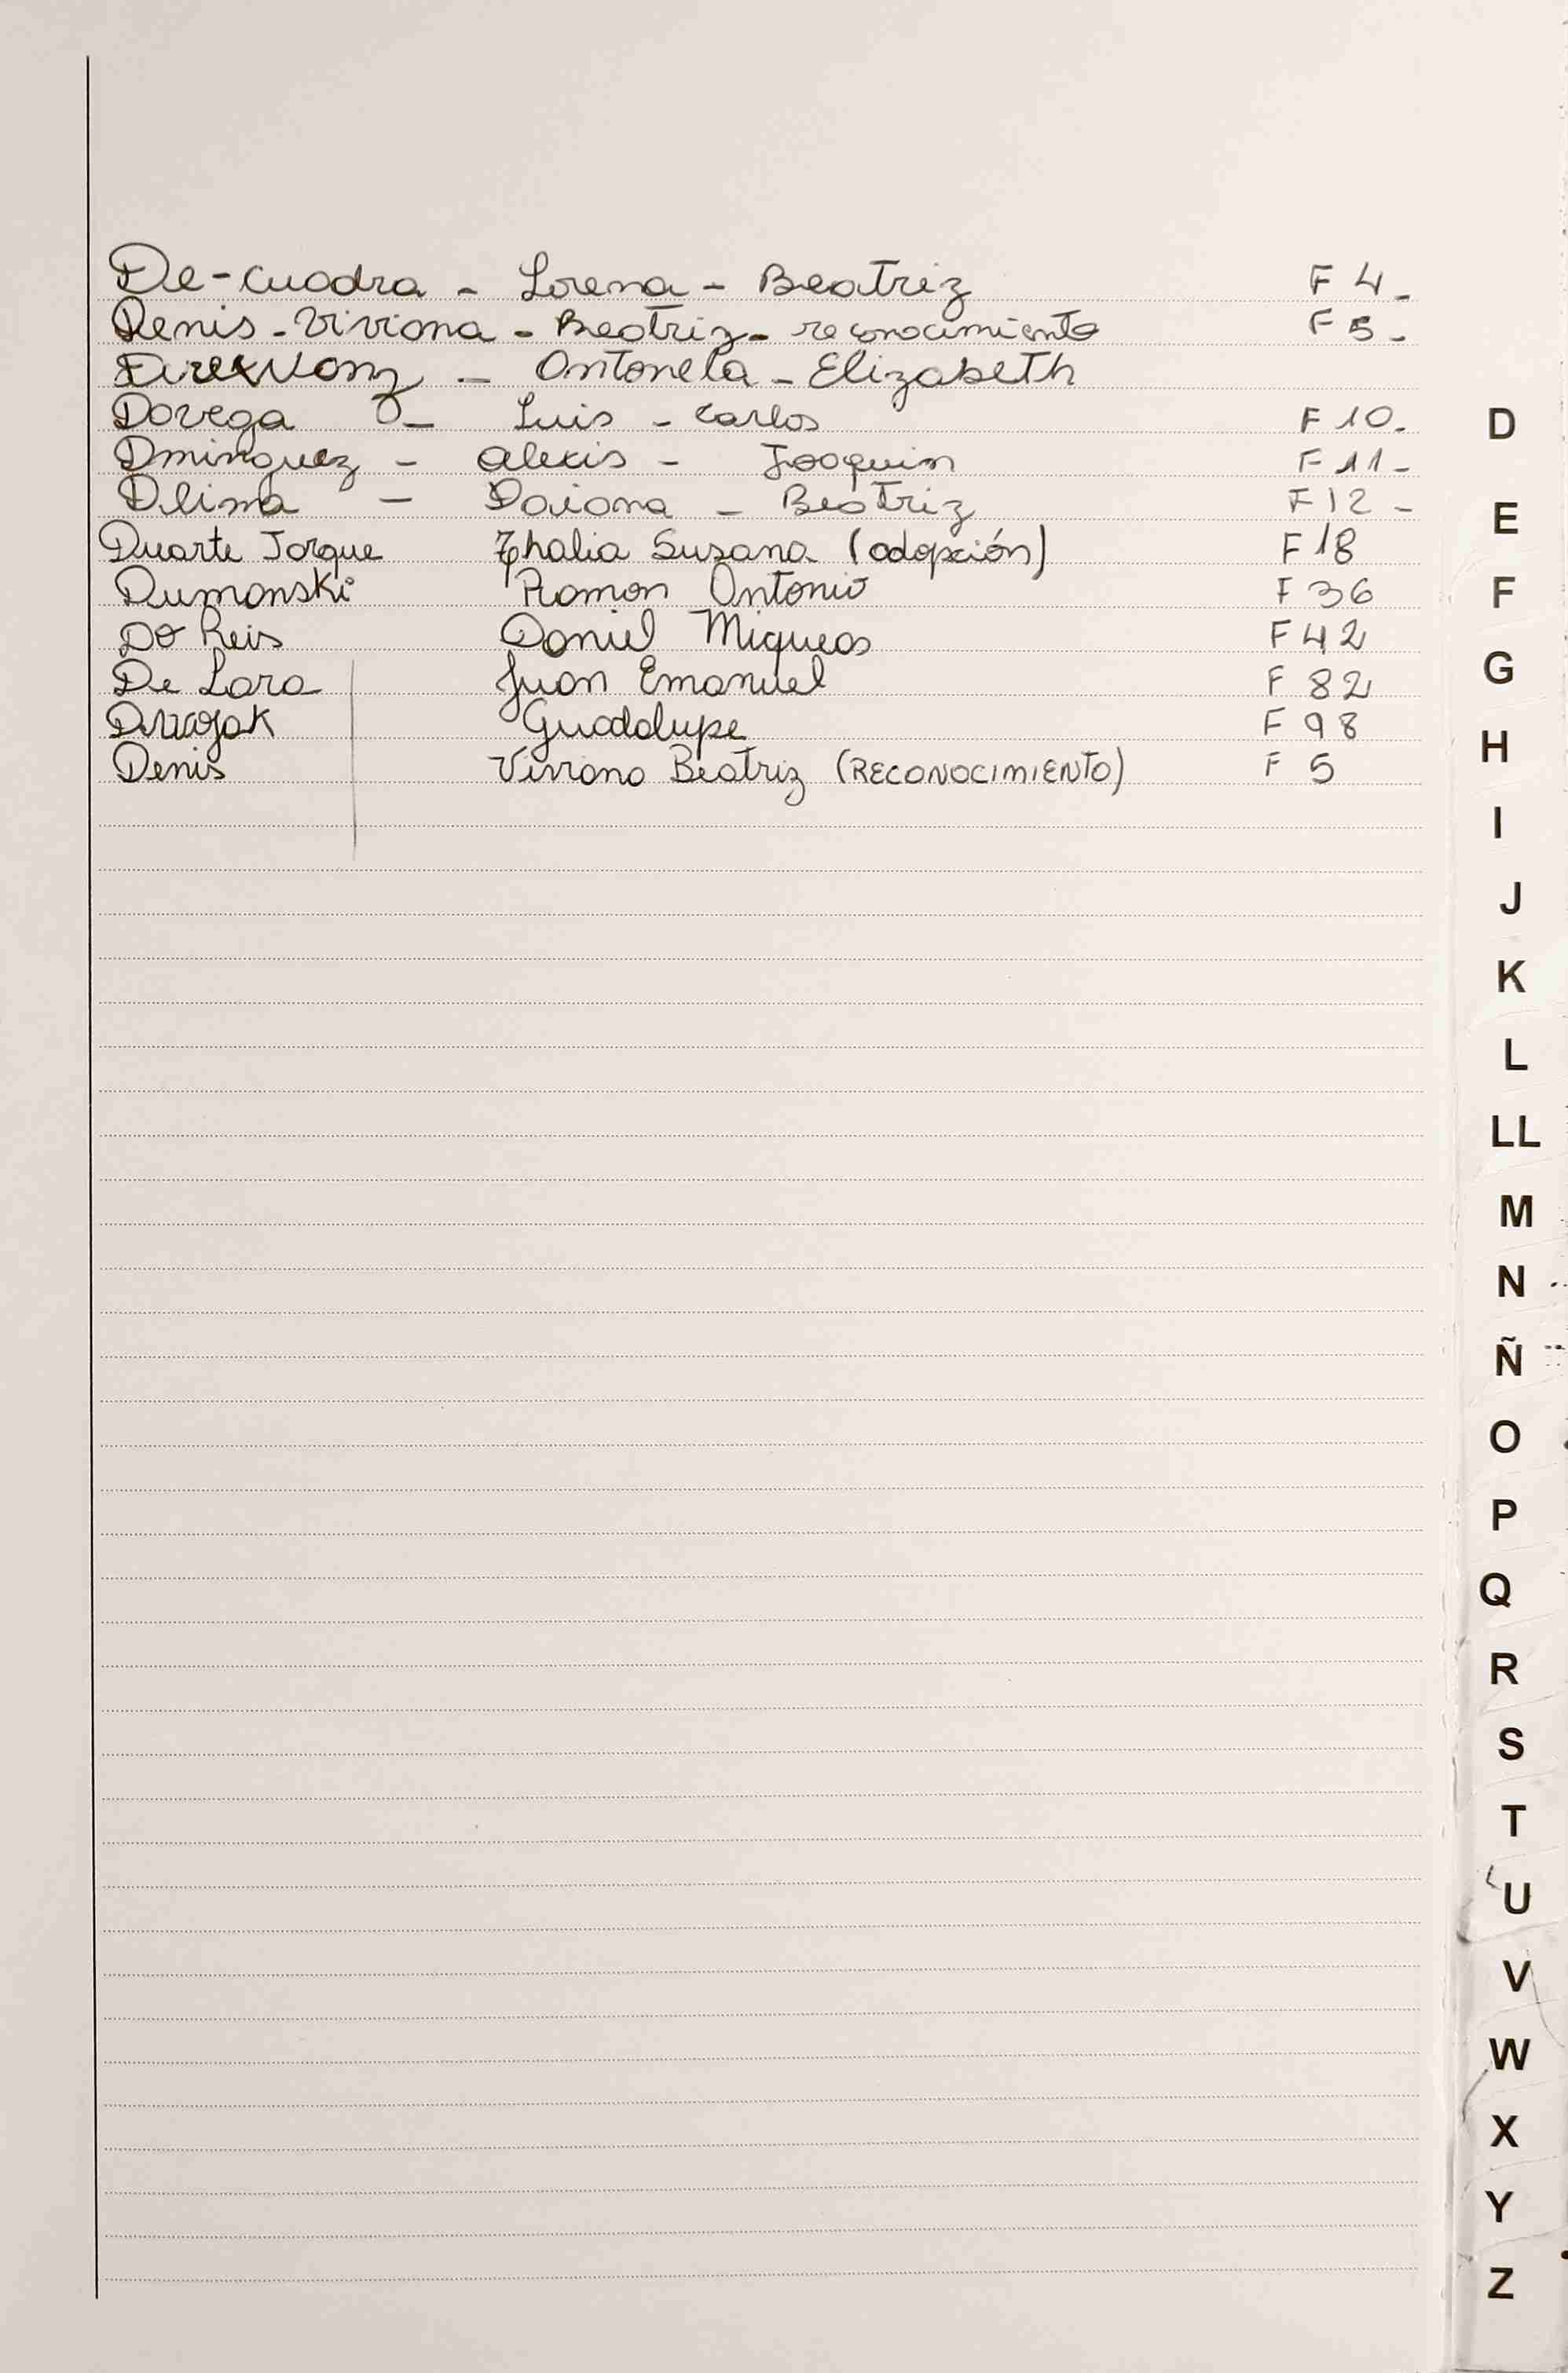 De-Cuadra - Lorena - Beatriz F 4-
Denis - Viviana - Beatriz - reconocimiento F 5-
- Antonela - Elizabeth
Dovega - Luis - Carlos F 10-
Dminguez - Alexis - Joaquin F 11-
Dlima - Daiana - Beatriz F 12-
Duarte Jorque Thalia Susana (adopción) F 18
Dumanski Ramon Antonio F 36
Do Reis Daniel Miqueas F 42
De Lara Juan Emanuel F 82
Guadalupe F 98
Denis Viviana Beatriz (RECONOCIMIENTO) F 5
D
E
F
G
H
I
J
K
L
LL
M
N
Ñ
O
P
Q
R
S
T
U
V
W
X
Y
Z